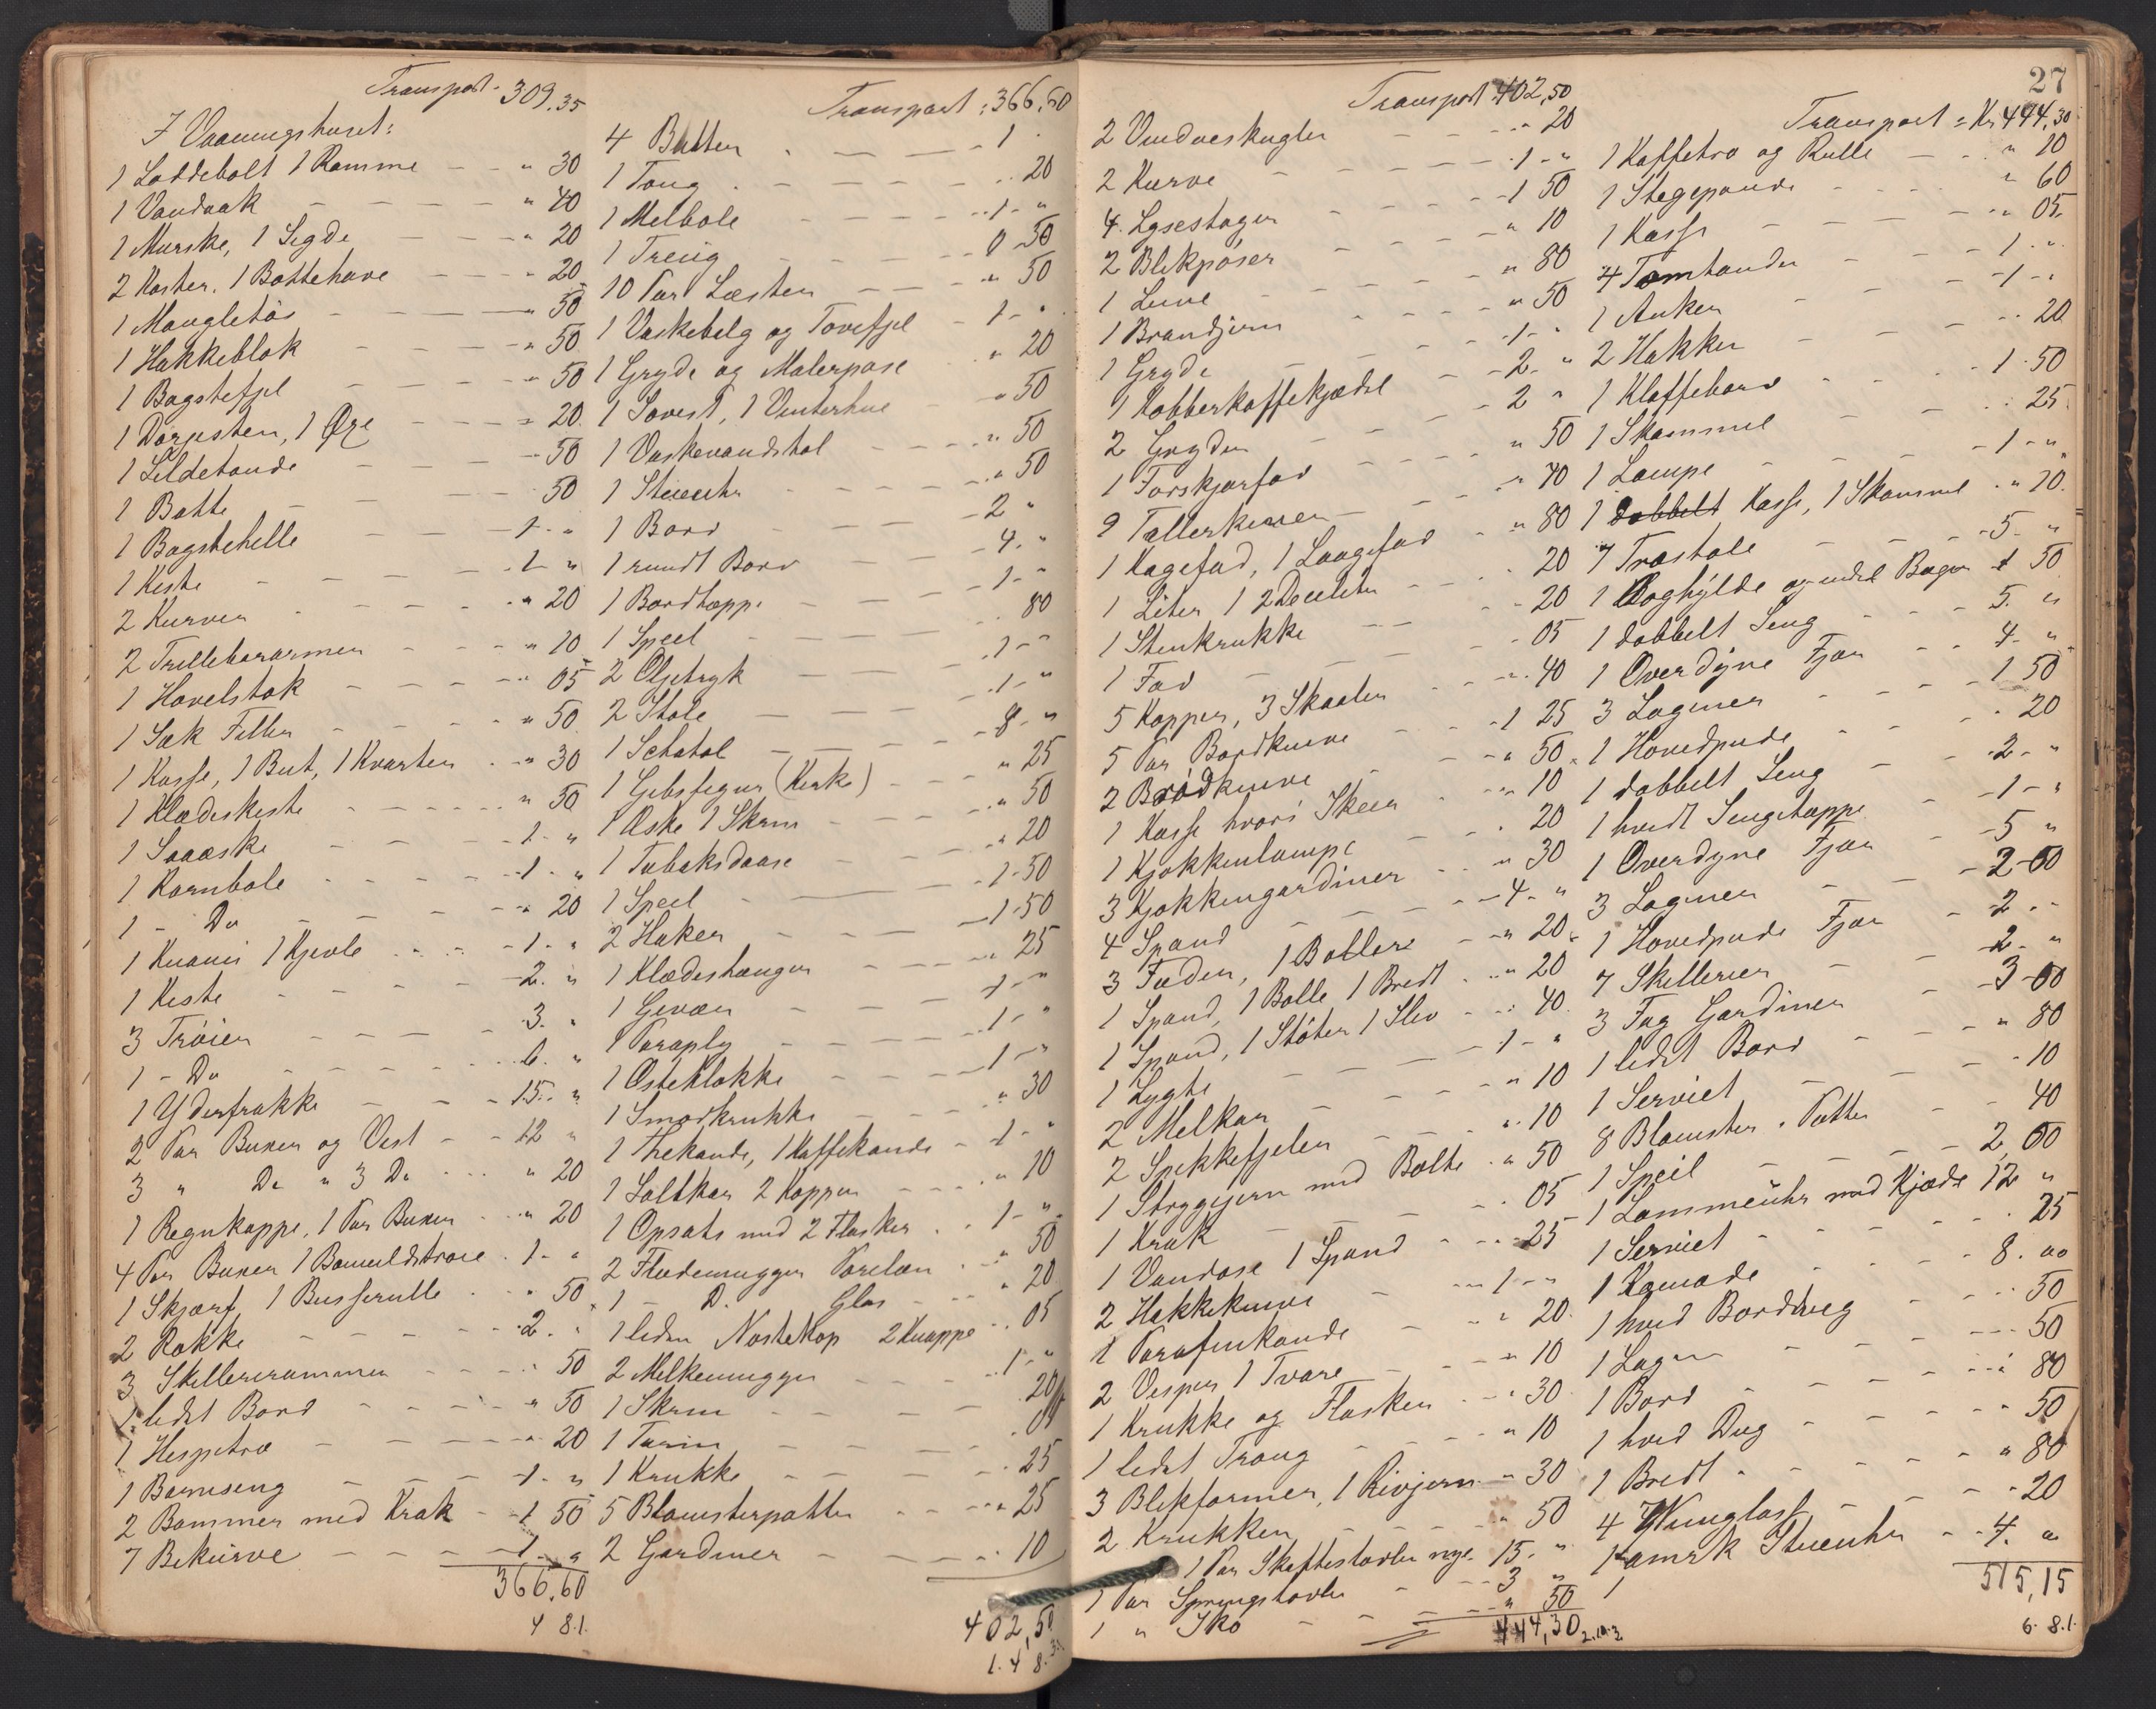 Transport 309.35
I Vaaningshuset:
1 Loddebolt 1 Ramme - - " 30
1 Vandaak - - - " 40
1 Murske, 1 Segde - - " 20
2 Koster, 1 Bøttehave - - 20
1 Mangletøi - - - 50
1 Hakkeblok - - " 50
1 Bagstefjel - - - " 50
1 Dørpisten, 1 Øxe - - " 20
1 Sildetønde - - - 50
1 Bøtte - - - 50
1 Bagstehelle - - 1 - "
1 Kiste - - - 1 - "
2 Kurver - - - " 20
2 Trillebørarmer - - " 10
1 Høvelstok - - - " 05
1 Sæk Filler - - - " 50
1 Kasse, 1 But, 1 Kvarter - " 30
1 Klædeskiste - - - " 50
1 Saaaske - - - 1 - "
1 Kornbøle - - - 1 - "
1 - Do - - - " 20
1 Knavis 1 Kjevle - - 1 - "
1 Kiste - - - 2. "
3 Trøier - - - 3. "
1 - Do - - - 6. "
1 Yderfrakke - - 15. "
2 Par Buxer og Vest - - 12 "
3 " Do " 3 Do - - " 20
1 Regnkappe, 1 Par Buxer - " 20
4 Par Buxer 1 Bomuldstrøie . 1 - "
1 Skjærf, 1 Busserulle - " 50
2 Rokke - - - 2. "
3 Skillerirammer - - 50
1 lidet Bord - - - " 50
1 Hespetræ - - - " 20
1 Barneseng - - - 1 - "
2 Bommer med Krak - 1 50
7 Bekurve - - - 1 "
366.60
4 81.
Transport: 366.60
4 Bøtter - - - 1 -
1 Tong - - - 20
1 Melbøle - - - 1 - "
1 Treug - - - 0 - 30
10 Par Læster - - " 50
1 Vaskebelg og Tovefjel - 1 - "
1 Gryde og Malerpose " 20
1 Sovest, 1 Vinterhue - " 50
1 Vaskevandstol - - " 50
1 Stueuhr - - - " 50
1 Bord - - - 2 "
1 rundt Bord - - 4. "
1 Bordtæppe - - 1 - "
1 Speil - - - 80
2 Oljetryk - - - 1 - "
2 Stole - - - 1 - "
1 Schatol - - - 8 - "
1 Gibsfigur (Kirke) - - " 25
1 Æske 1 Skrin - - " 50
1 Tobaksdaase - - " 20
1 Speil - - - 1-50
2 Haker - - - 1-50
1 Klædeshænger - - " 25
1 Gevær - - - 1 - "
1 Paraply - - - 1 - "
1 Osteklokke - - - 1 - "
1 Smørkrukke - - - " 30
1 Thekande, 1 Kaffekande - 1 - "
1 Saltkar 2 Kopper - - " 10
1 Opsats med 2 Flasker . . 1 - "
2 Flødemugger Porelæn . " 50
1 - D. Glas - - " 20
1 liden Nøstekop 2 Knappe - . 05
2 Melkemugger - - 1 - "
1 Skrin - - - 20
1 Terrin - - - 05
1 Krukke - - - 25
5 Blomsterpotter - - " 25
2 Gardiner - - - 10
402,50
1. 4 8.
Transport 402,50
2 Vinduskugler - - - " 20
2 Kurve - - - 1 - "
4. Lysestager - - - 1 50
2 Blikpøser - - - " 10
1 Luve - - - " 80
1 Brandjern - - - " 50
1 Gryde - - - 1 - "
1 Kobberkaffekjædel - 2 - "
2 Gryder - - - 2 "
1 Torskjærfad - - " 50
9 Tallerkener - - " 70
1 Kagefad, 1 Laagefad - " 80
1 Liter 1 2 Deciliter - - 20
1 Stenkrukke - - - 20
1 Fad - - - 05
5 Kopper, 3 Skaaler - - 40
5 Par Bordknive - - 1 25
2 Brødknive - - " 50
1 Kasse hvori Skeer - " 10
1 Kjøkkenlampe - - " 20
3 Kjøkkengardiner - - " 30
4 Spand - - - 4 - "
3 Fæden, 1 Bolle - - " 20
1 Spand, 1 Bolle 1 Bredt . " 20
1 Spand, 1 Støter 1 Slev - : 40
1 Lygte - - - 1 - "
2 Melkar - - - " 10
2 Spekkefjeler - - " 10
1 Strygejern med Bolte . " 50
1 Krak - - - 05
1 Vandøse 1 Spand - - 25
2 Hakkeknive - - 1 - "
1 Parafinkande - - " 20
2 Visper 1 Tvare - - " 10
1 Krukke og Flasker - - " 30
1 lidet Traug - - - " 10
3 Blikformer, 1 Rivjern - " 30
2 Krukker - - - " 50
1 Par Skaftestøvler nye. 15. "
1 Par Springstøvler - - 3 "
1 " Sko - - - " 50
444,30
27
Transport = Kr 444,30
1 Kaffetro og Rulle - " 10
1 Stegepande - - - " 60
1 Kasse - - - " 05
4 Tomtønder - - - 1 . "
1 Anker - - - 1 - "
2 Hakker - - - " 20
1 Klaffebord - - 1.50
1 Skammel - - - 25
1 Lampe - - - 1 - "
1 dobbelt Kasse, 1 Skammel . " 10
7 Træstole - - - 5 - "
1 Boghylde og endel Bøger 1 50
1 dobbelt Seng - - - 5. "
1 Overdyne Fjær - - 4 - "
3 Lagner - - - 1 50
1 Hovedpude - - - 20
1 dobbelt Seng - - 2 - "
1 hvidt Sengetæppe - 1 - "
1 Overdyne Fjær - - 5 "
3 Lagner - - - 2-00
1 Hovedpude Fjær - - 2 - -
7 Skillerier - - - 2 - "
3 Fag Gardiner - - 3-00
1 lidet Bord - - - " 80
1 Serviet - - - 10
8 Blomster . Potter - - 40
1 Speil - - - 2,00
1 Lommeuhr med Kjæde 12 "
1 Serviet - - - 25
1 Komode - - - 8. 00
1 hvid Borddug - - - 50
1 Lagen - - - 50
1 Bord - - - 80
1 hvid Dug - - - 50
1 Bredt - - - " 80
4 Vinglass - - - 20
1 amrk Stueuhr - - 4. "
1
515,15
6. 8.1.